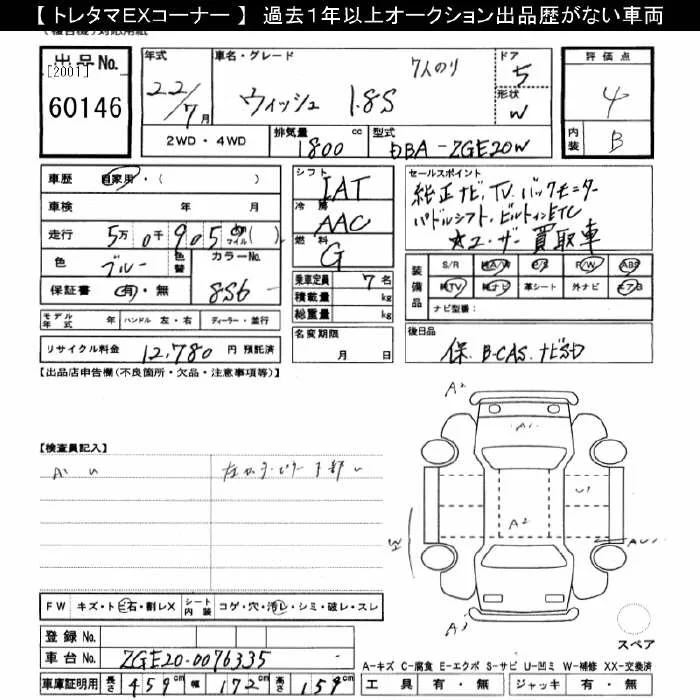 【 トレタマEXコーナー 】 過去1年以上オークション出品歴がない車両
出品No.
[2001]
60146
年式
22/7月
車名・グレード
ウィッシュ 1.8S
7人のり
ドア
5
形状
W
評価点
4
内装
B
2WD・4WD
排気量
1800 cc
型式
DBA-ZGE20W
車歴 自家用・( )
車検 年 月
走行 5万0千905 km マイル ( )
色 ブルー 色替 カラーNo.
保証書 有・無 8S6
モデル年式 年 ハンドル 左・右 ディーラー・並行
リサイクル料金 12,780 円 預託済
シフト
IAT
冷房
AAC
燃料
G
乗車定員 7名
積載量 kg
総重量 kg
名変期限
月 日
セールスポイント
純正ナビ、TV、バックモニター
パドルシフト、ビルトインETC
★ユーザー買取車
装備品 S/R 純A/W P/S P/W ABS
純TV 純ナビ 革シート 外ナビ エアB
ナビ型番:
後日品
保、B-CAS、ナビSD
【出品店申告欄(不良箇所・欠品・注意事項等)】
【検査員記入】
A2
A1
U1
A2
W
A2
FW キズ・トビ石・割レX シート内装 コゲ・穴・汚レ・シミ・破レ・スレ
登録 No.
車台 No. ZGE20-0076335
車庫証明用 長さ 459cm 幅 172cm 高さ 159cm
スペア
A-キズ C-腐食 E-エクボ S-サビ U-凹ミ W-補修 XX-交換済
工具 有・無 ジャッキ 有・無